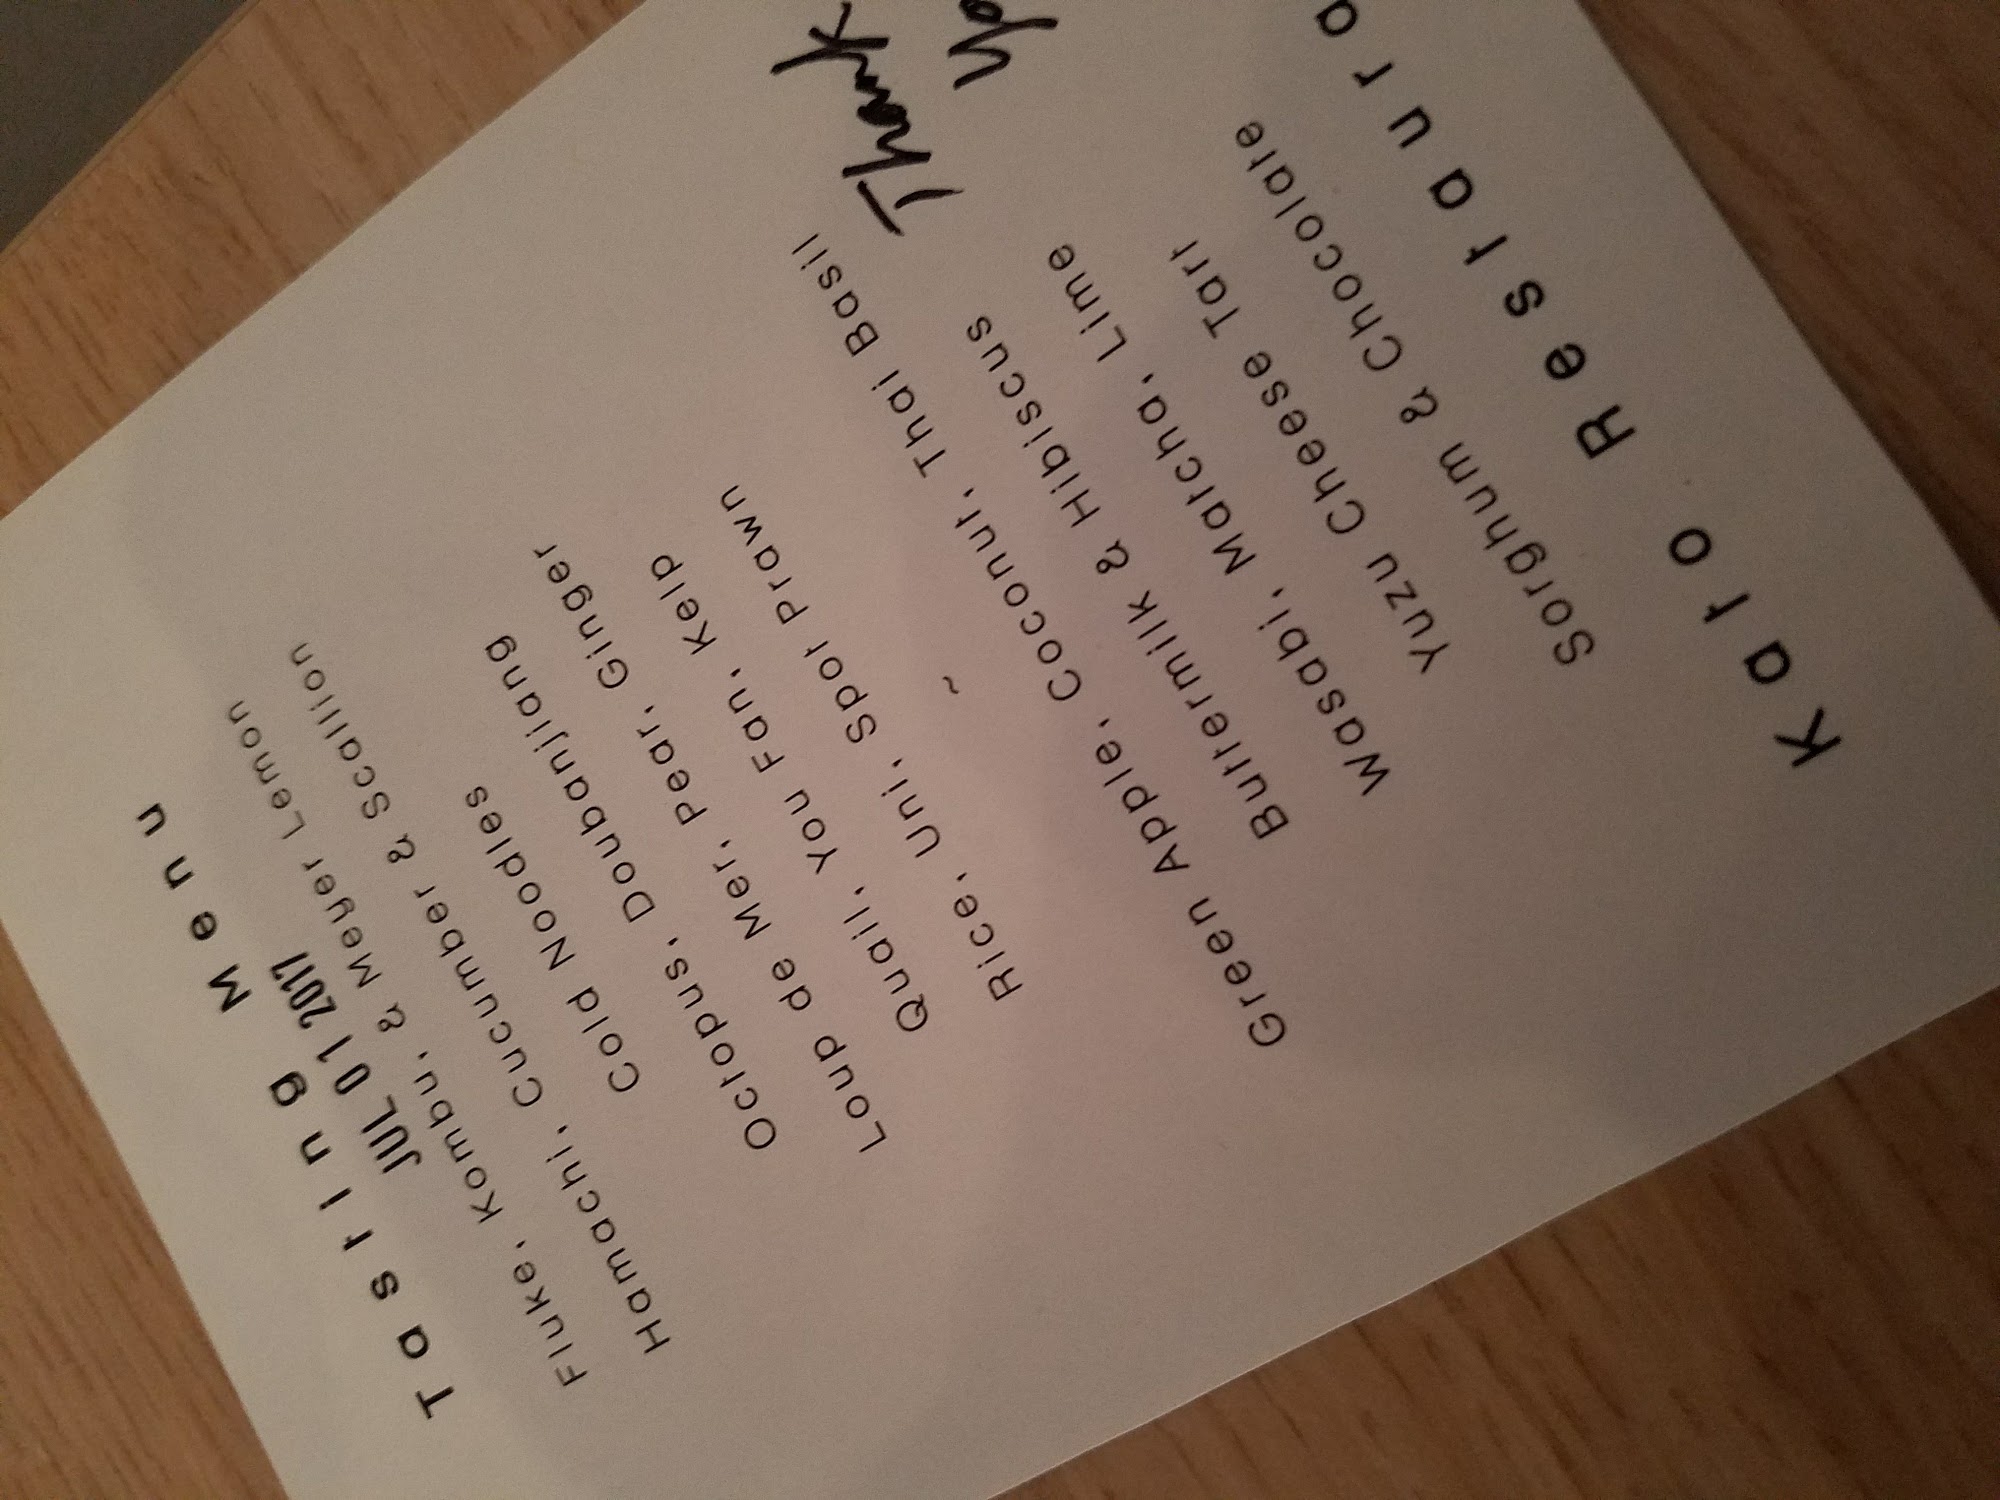 Tasting Menu
JUL 01 2017
Fluke, Kombu, & Meyer Lemon
Hamachi, Cucumber & Scallion
Cold Noodles
Octopus, Doubanjiang
Loup de Mer, Pear, Ginger
Quail, You Fan, Kelp
Rice, Uni, Spot Prawn
~
Green Apple, Coconut, Thai Basil
Buttermilk & Hibiscus
Wasabi, Matcha, Lime
Yuzu Cheese Tart
Sorghum & Chocolate
Thank
Yo
Kato Restaura